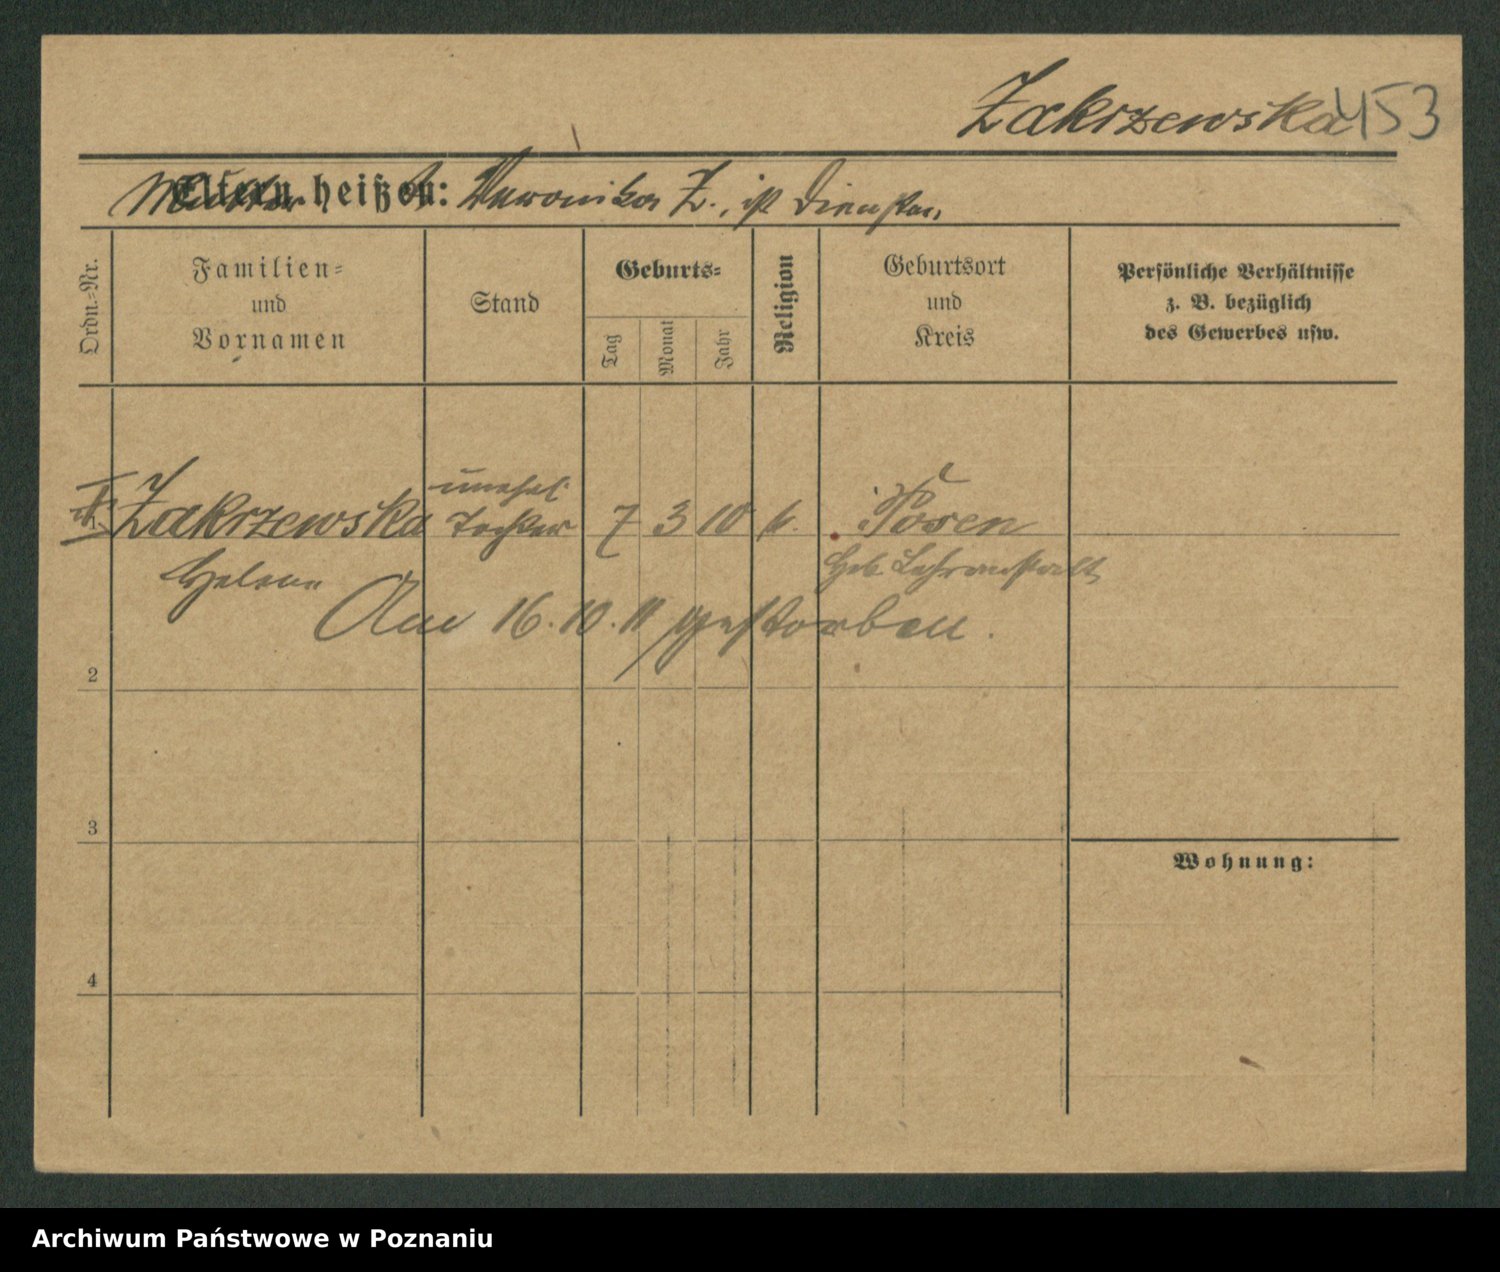 Zakrzewska 453
Eltern heißen: Mutter Veronika Z., ist Dienstm.
Ordn.-Nr.
Familien-
und
Vornamen
Stand
Geburts-
Tag
Monat
Jahr
Religion
Geburtsort
und
Kreis
Persönliche Verhältnisse
z. B. bezüglich
des Gewerbes usw.
unehel.
1 Zakrzewska Tochter 7 3 10 k. Posen
Helene Heb. Lehranstalt
Am 16.10.11 gestorben.
2
3
Wohnung:
4
Archiwum Państwowe w Poznaniu